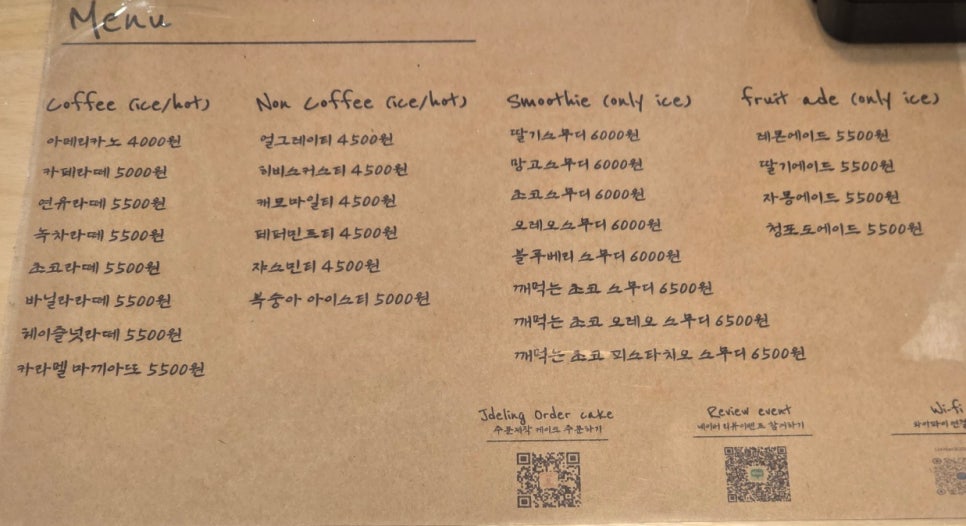 Menu
Coffee (ice/hot)
아메리카노 4000원
카페라떼 5000원
연유라떼 5500원
녹차라떼 5500원
초코라떼 5500원
바닐라라떼 5500원
헤이즐넛라떼 5500원
카라멜 마끼아또 5500원
Non Coffee (ice/hot)
얼그레이티 4500원
히비스커스티 4500원
캐모마일티 4500원
페퍼민트티 4500원
쟈스민티 4500원
복숭아 아이스티 5000원
Smoothie (only ice)
딸기스무디 6000원
망고스무디 6000원
초코스무디 6000원
오레오스무디 6000원
블루베리 스무디 6000원
깨먹는 초코 스무디 6500원
깨먹는 초코 오레오 스무디 6500원
깨먹는 초코 피스타치오 스무디 6500원
fruit ade (only ice)
레몬에이드 5500원
딸기에이드 5500원
자몽에이드 5500원
청포도에이드 5500원
Jdeling Order cake
주문제작 케이크 주문하기
Review event
네이버 리뷰이벤트 참여하기
Wi-fi
와이파이 연결